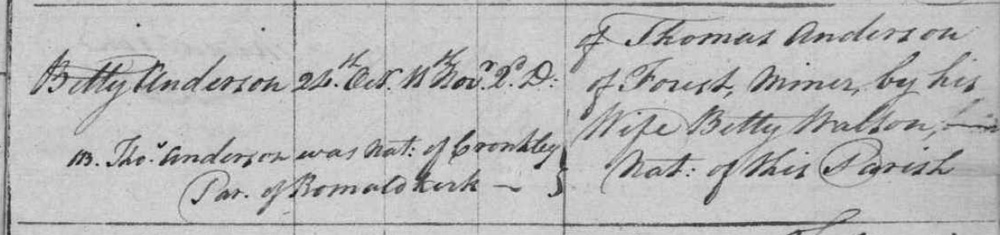 Betty Anderson 24.th Oct. 11.th Nov.r 2.d D:
of Thomas Anderson
of Forest, Miner, by his
Wife Betty Walton,
Nat: of this Parish
NB. Tho.s Anderson was Nat: of Cronkley
Par. of Romaldkirk —